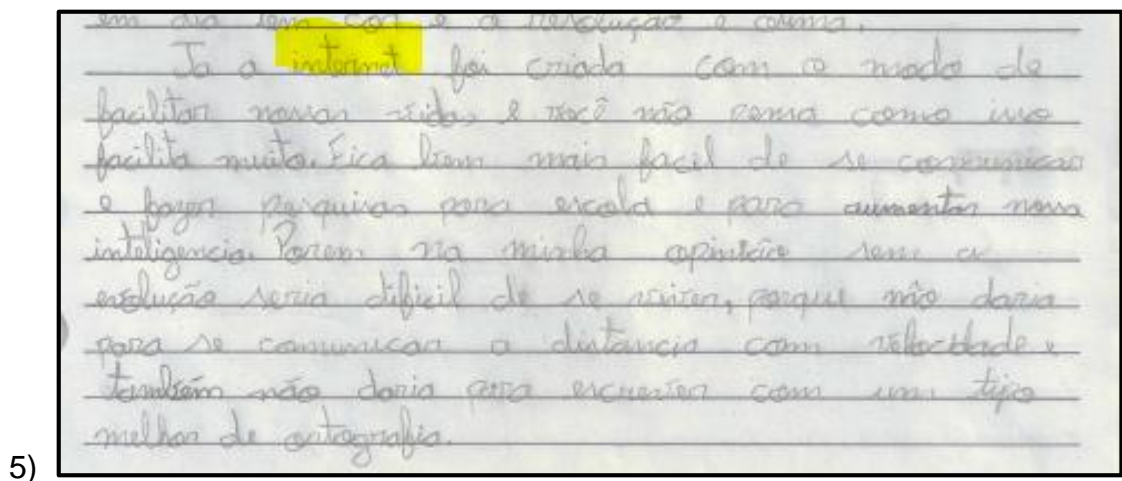 em dia tem cor e a resolução é otima.
Ja a internet foi criada com o modo de
facilitar nossas vidas, e você não pensa como isso
facilita muito. Fica bem mais facil de se comunicar
e fazer pesquisas para escola e para aumentar nossa
inteligencia. Porem na minha opinião sem a
evolução seria dificil de se viver, porque não daria
para se comunicar a distancia com velocidade e
também não daria para escrever com um tipo
melhor de ortografia.
5)